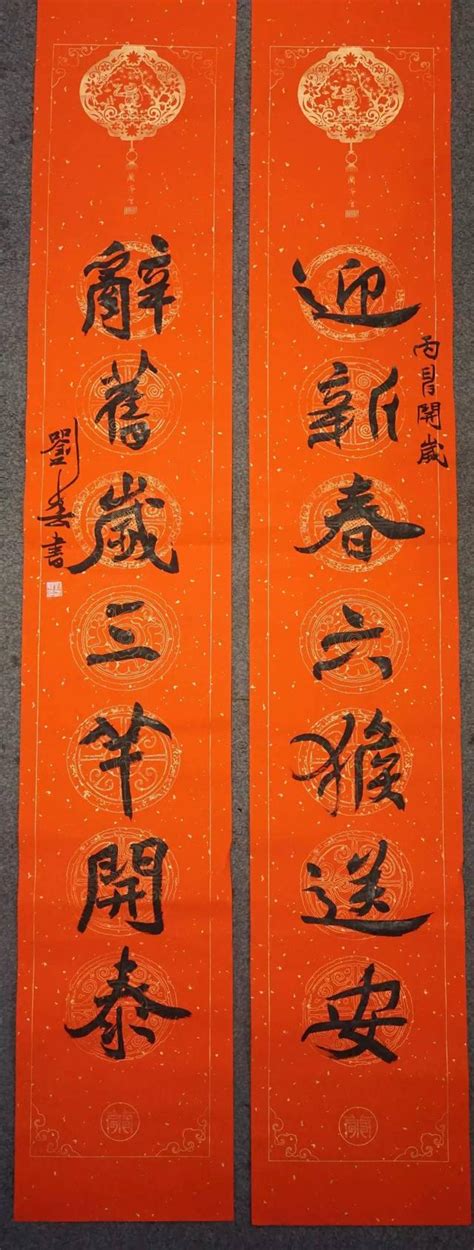 丙申開歲
迎新春六猴送安
辭舊歲三羊開泰
劉 書